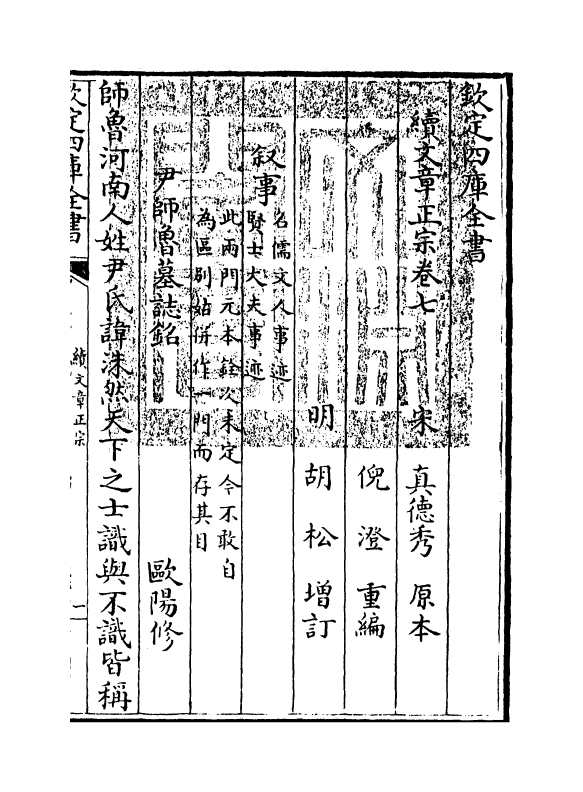 欽定四庫全書
續文章正宗卷七
宋 真德秀 原本
倪澄 重編
明 胡松 增訂
叙事
名儒文人事迹
賢士大夫事迹
此兩門元本銓次未定今不敢自
為區别姑併作一門而存其目
尹師魯墓誌銘
歐陽修
師魯河南人姓尹氏諱洙然天下之士識與不識皆稱
欽定四庫全書
續文章正宗
一